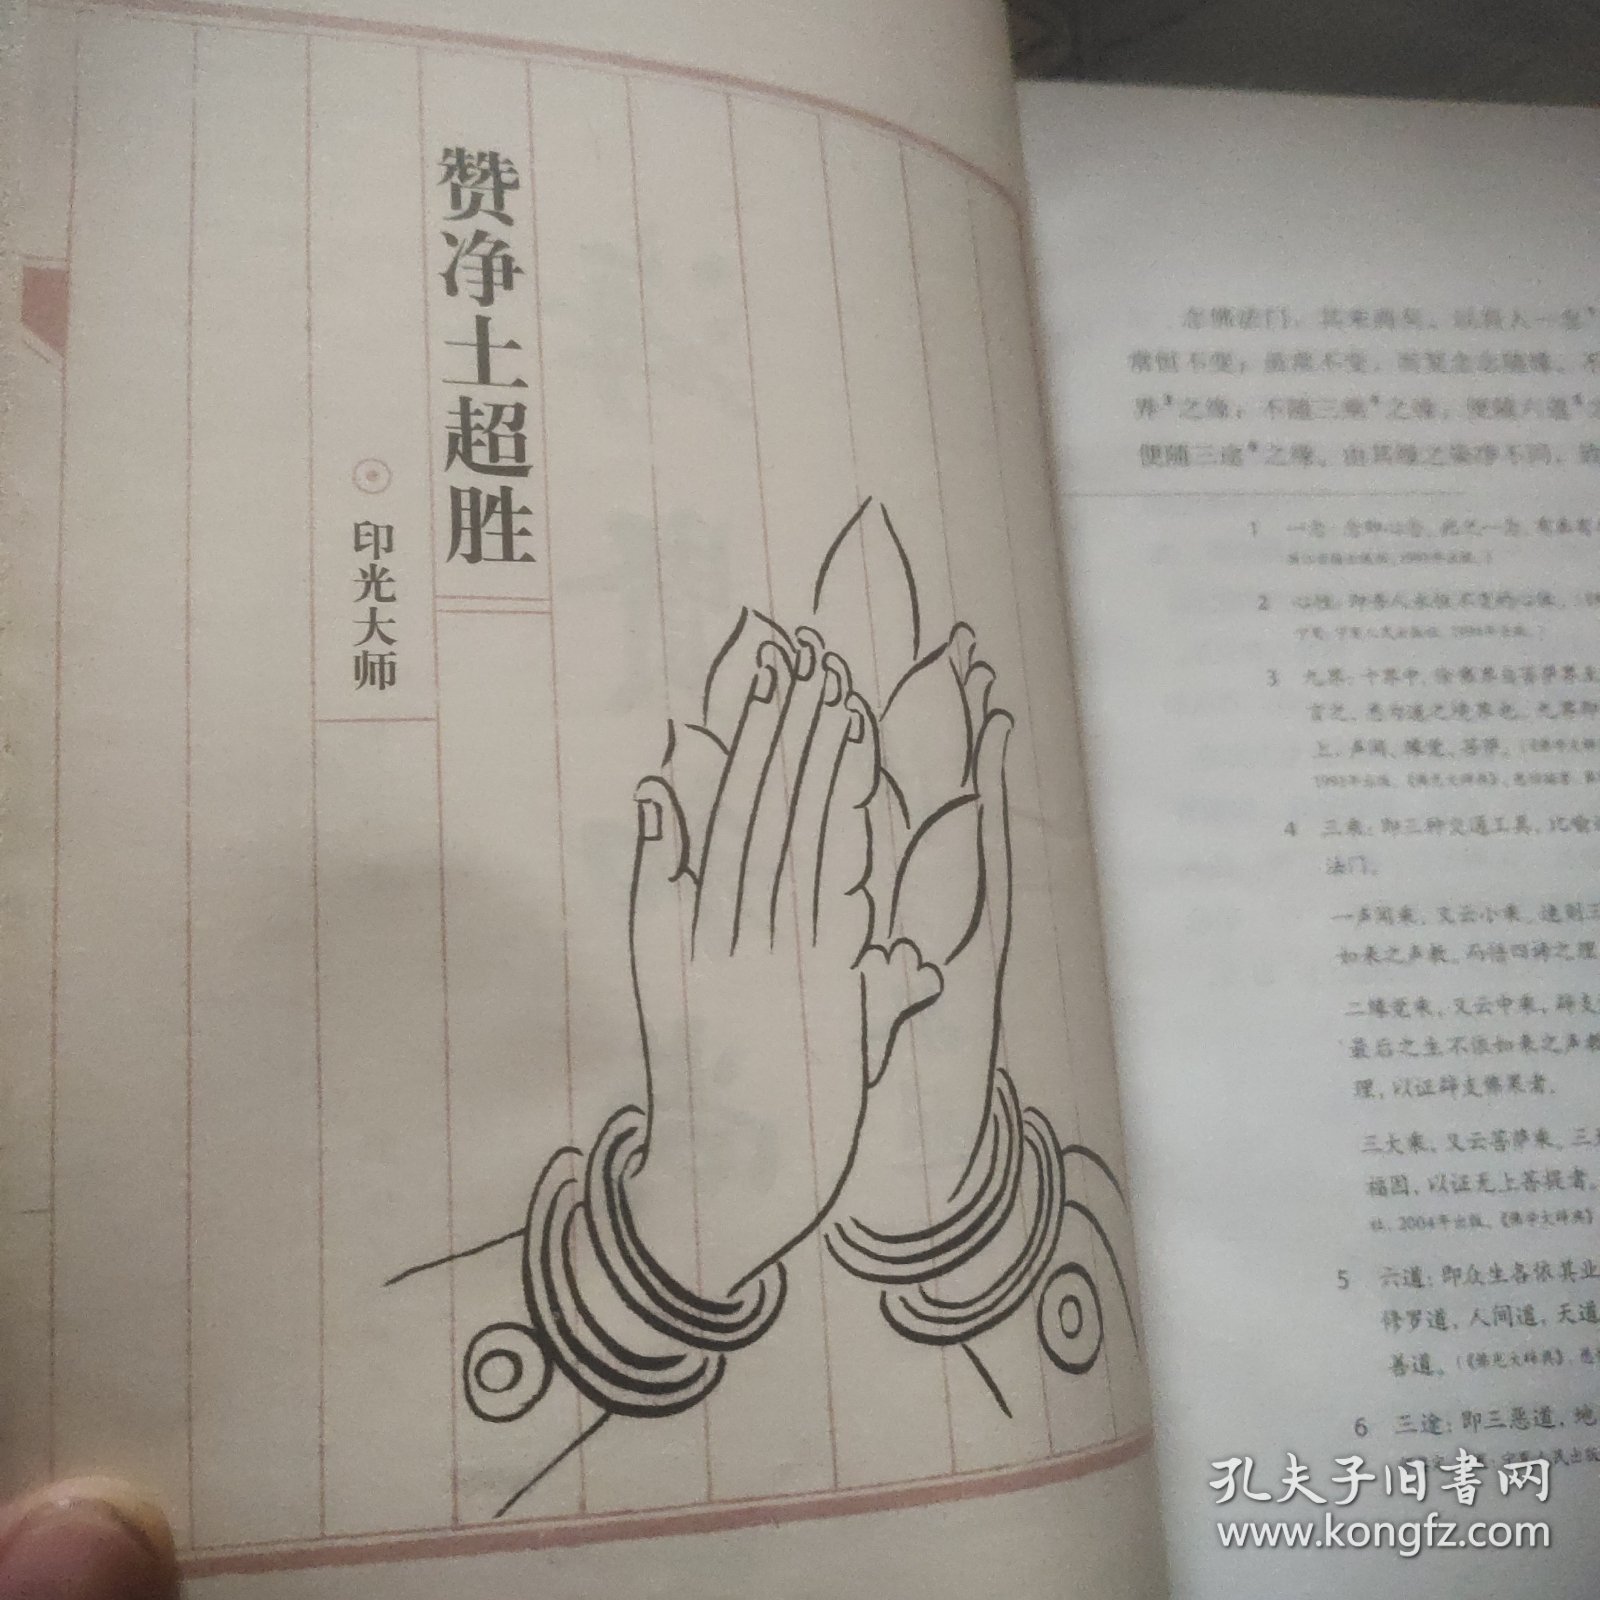 赞净土超胜
印光大师
念佛法门，其来尚矣。以吾人一念
常恒不变；虽常不变，而复念念随缘。不
界³之缘；不随三乘⁴之缘，便随六道⁵之
便随三途⁶之缘。由其缘之染净不同，致
1 一念：
2 心性：即吾人永恒不变的心体。
3 九界：十界中，除佛界自菩萨界至
言之，悉为迷之境界也。九界即
上，声闻、缘觉、菩萨。
1991年出版，《佛光大辞典》，慈怡编著
4 三乘：即三种交通工具，比喻
法门。
一声闻乘，又云小乘，速则三
如来之声教，而悟四谛之理
二缘觉乘，又云中乘，辟支
最后之生不依如来之声教
理，以证辟支佛果者。
三大乘，又云菩萨乘，三
福因，以证无上菩提者。
社，2004年出版，《佛学大辞典》
5 六道：即众生各依其业
修罗道，人间道，天道
善道。（《佛光大辞典》，慈
6 三途：即三恶道，地
宁夏人民出版
孔夫子旧书网
www.kongfz.com